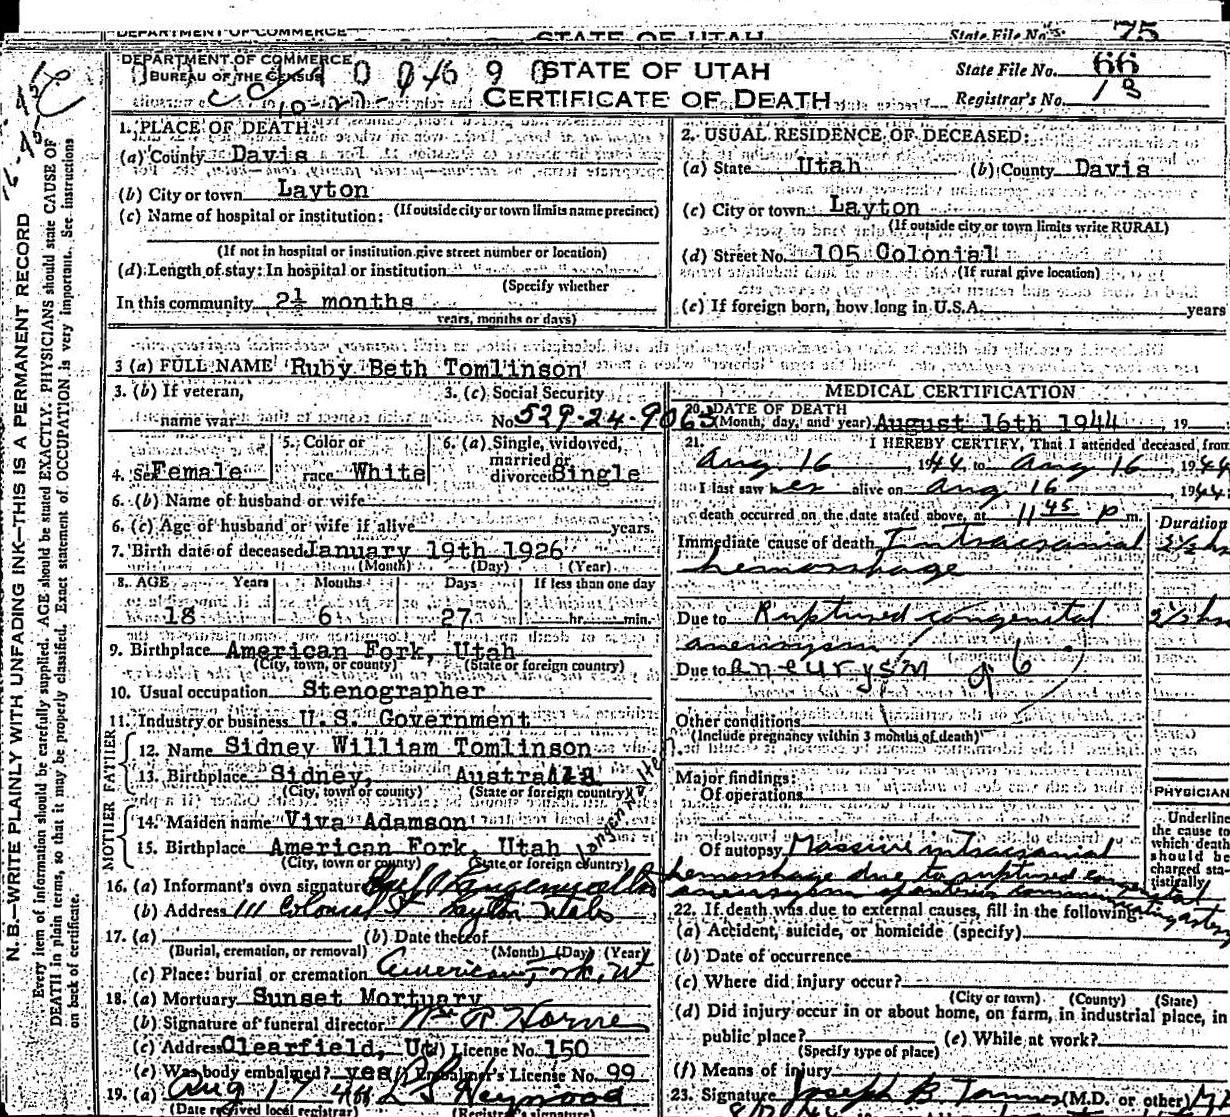 DEPARTMENT OF COMMERCE
STATE OF UTAH
State File No. 75
DEPARTMENT OF COMMERCE
BUREAU OF THE CENSUS
STATE OF UTAH
CERTIFICATE OF DEATH
State File No. 66
Registrar's No. 18
N. B.—WRITE PLAINLY WITH UNFADING INK—THIS IS A PERMANENT RECORD
Every item of information should be carefully supplied. AGE should be stated EXACTLY. PHYSICIANS should state CAUSE OF
DEATH in plain terms, so that it may be properly classified. Exact statement of OCCUPATION is very important. See instructions
on back of certificate.
1. PLACE OF DEATH:
(a) County Davis
(b) City or town Layton
(If outside city or town limits name precinct)
(c) Name of hospital or institution:
(If not in hospital or institution give street number or location)
(d) Length of stay: In hospital or institution
(Specify whether
In this community 2½ months
years, months or days)
2. USUAL RESIDENCE OF DECEASED:
(a) State Utah (b) County Davis
(c) City or town Layton
(If outside city or town limits write RURAL)
(d) Street No. 105 Colonial
(If rural give location)
(e) If foreign born, how long in U.S.A. years
3 (a) FULL NAME Ruby Beth Tomlinson
3. (b) If veteran,
name war
3. (c) Social Security
No. 529-24-9063
4. Sex Female
5. Color or
race White
6. (a) Single, widowed,
married or
divorced Single
6. (b) Name of husband or wife
6. (c) Age of husband or wife if alive years.
7. Birth date of deceased January 19th 1926
(Month) (Day) (Year)
8. AGE Years Months Days If less than one day
18 6 27 hr. min.
9. Birthplace American Fork, Utah
(City, town, or county) (State or foreign country)
10. Usual occupation Stenographer
11. Industry or business U.S. Government
FATHER
12. Name Sidney William Tomlinson
13. Birthplace Sidney, Australia
(City, town or county) (State or foreign country)
MOTHER
14. Maiden name Viva Adamson
15. Birthplace American Fork, Utah
(City, town or county) (State or foreign country)
16. (a) Informant's own signature
(b) Address 111 Colonial St Layton Utah
17. (a) (b) Date thereof
(Burial, cremation, or removal) (Month) (Day) (Year)
(c) Place: burial or cremation American Fork, Ut
18. (a) Mortuary Sunset Mortuary
(b) Signature of funeral director Wm R Horne
(c) Address Clearfield, Ut (d) License No. 150
(e) Was body embalmed? yes Embalmer's License No. 99
19. (a) Aug 17 44
(Date received local registrar) (Registrar's signature)
MEDICAL CERTIFICATION
20. DATE OF DEATH
(Month, day, and year) August 16th 1944, 19
21. I HEREBY CERTIFY, That I attended deceased from
Aug 16, 1944 to Aug 16, 1944
I last saw her alive on Aug 16, 1944
death occurred on the date stated above, at 11 45 P m.
Duration
Immediate cause of death Intracranial
hemorrhage
Due to Ruptured congenital 2½ hrs
aneurysm
Due to aneurysm
Other conditions
(Include pregnancy within 3 months of death)
Major findings:
Of operations
Of autopsy Massive intracranial
hemorrhage due to ruptured congenital
aneurysm of anterior communicating artery
PHYSICIAN
Underline
the cause to
which death
should be
charged sta-
tistically
22. If death was due to external causes, fill in the following:
(a) Accident, suicide, or homicide (specify)
(b) Date of occurrence
(c) Where did injury occur?
(City or town) (County) (State)
(d) Did injury occur in or about home, on farm, in industrial place, in
public place? (e) While at work?
(Specify type of place)
(f) Means of injury
23. Signature Joseph B. Tanner (M.D. or other) M